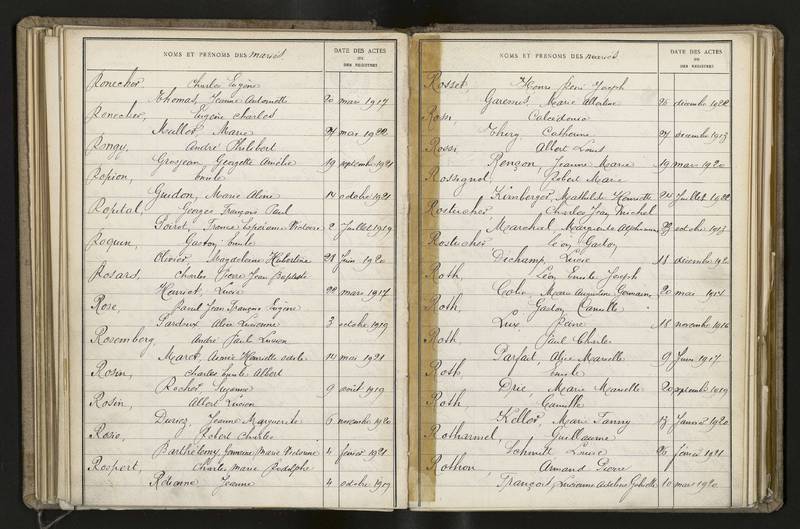 NOMS ET PRÉNOMS DES mariés
DATE DES ACTES
OU
DES REGISTRES
Ronecher, Charles Eugène
Thomas, Jeanne Antoinette 20 mars 1917
Ronecher, Eugène Charles
Muller, Marie 27 mai 1922
Rongy, André Philibert
Grosjean, Georgette Amélie 19 septembre 1921
Ropion, Emile
Guidon, Marie Aline 14 octobre 1921
Ropital, Georges François Paul
Poirot, France Espérance Victoire 2 Juillet 1919
Roquin, Gaston Emile
Olivier, Magdeleine Hubertine 28 Juin 1920
Rosard, Charles Pierre Jean Baptiste
Henriot, Lucie 22 mars 1917
Rose, Paul Jean François Eugène
Pardoux Alice Lucienne 3 octobre 1919
Rosemberg, André Paul Lucien
Marot, Aimée Henriette 14 mai 1921
Rosin, Charles Emile Albert
Rochet, Suzanne 9 août 1919
Rosin, Albert Lucien
Duriez, Jeanne Marguerite 6 novembre 1920
Rosio, Robert Charles
Barthélemy, Germaine Marie Victorine 4 février 1921
Rospert, Charles Marie Rodolphe
Jeanne 4 octobre 1919
NOMS ET PRÉNOMS DES mariés
DATE DES ACTES
OU
DES REGISTRES
Rosset, Henri René Joseph
Marie Albertine 26 décembre 1922
Rossi, Calcedonio
Thery Catherine 27 décembre 1913
Rossi Albert Louis
Ronçon, Jeanne Marie 19 mars 1920
Rossignol, Robert Marie
Kirnberger, Mathilde Henriette 24 Juillet 1922
Rostucher, Charles Jean Michel
Marechal, Marguerite Alphonsine 23 octobre 1913
Rostucher Léon Gaston
Dechamp, Lucie 18 décembre 1920
Roth, Léon Emile Joseph
Colin, Marie Augustine Germaine 20 mai 1914
Roth, Gaston Camille
Lux, Reine 18 novembre 1916
Roth Paul Charles
Parfait, Alice Marcelle 9 Juin 1917
Roth, Emile
Marie Marcelle 20 septembre 1919
Roth, Camille
Keller, Marie Fanny 13 Janvier 1920
Rotharmel, Guillaume
Schmitt Louise 26 février 1921
Rothon, Armand Pierre
François, Lucienne Adeline 10 mars 1920